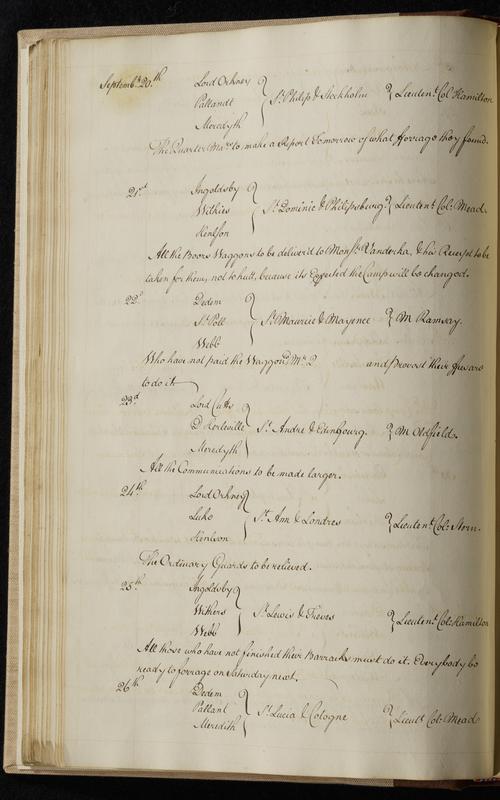 Septemb.r 20.th Lord Orkney
Pallandt } S.t Philip & Stockholm } Lieuten.t Col. Hamilton
Meredyth
The Quarter Ma.rs to make a Report Tomorrow of what fforrage they found.
21.st Ingoldsby
Withies } S.t Dominic & Philipsbourg. } Lieuten.t Col: Mead.
Henlson
All the Boors Waggons to be deliver'd to Mons.r Vanderka, & his Receipt to be
taken for them, not to hutt, because its Expected the Camp will be changed.
22.d Dedem
S.t Poll } S.t Maurice & Mayence } M Ramsay.
Webb
Who have not paid the Waggon M.r 2 and Provost their ffewars
to do it
23.d Lord Cutts
D Herleville } S.t Andre & Edinbourg. } M Oldfields.
Meredyth
All the Communications to be made larger.
24.th Lord Orkney
Luke } S.t Ann & Londres } Lieuten.t Col: Stern.
Henlson
The Ordinary Guards to be relieved.
25.th Ingoldsby
Withers } S.t Lewis & Treves } Lieuten.t Col: Hamilton
Webb
All those who have not finished their Barracks must do it. Everybody be
ready to forrage on Saturday next.
26.th Dedem
Pallant } S.t Lucia & Cologne } Lieut.t Col: Mead
Meredith